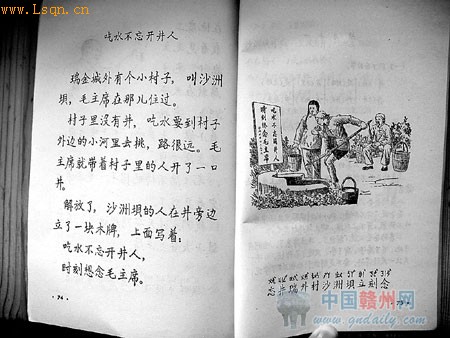 www.Lsqn.cn
吃水不忘开井人
瑞金城外有个小村子，叫沙洲
坝，毛主席在那儿住过。
村子里没有井，吃水要到村子
外边的小河里去挑，路很远。毛
主席就带着村子里的人开了一口
井。
解放了，沙洲坝的人在井旁边
立了一块木牌，上面写着：
吃水不忘开井人，
时刻想念毛主席。
·74·
吃水不忘开井人
时刻想念毛主席
忘井瑞外村沙洲坝立刻念
中国赣州网
www.gndaily.com